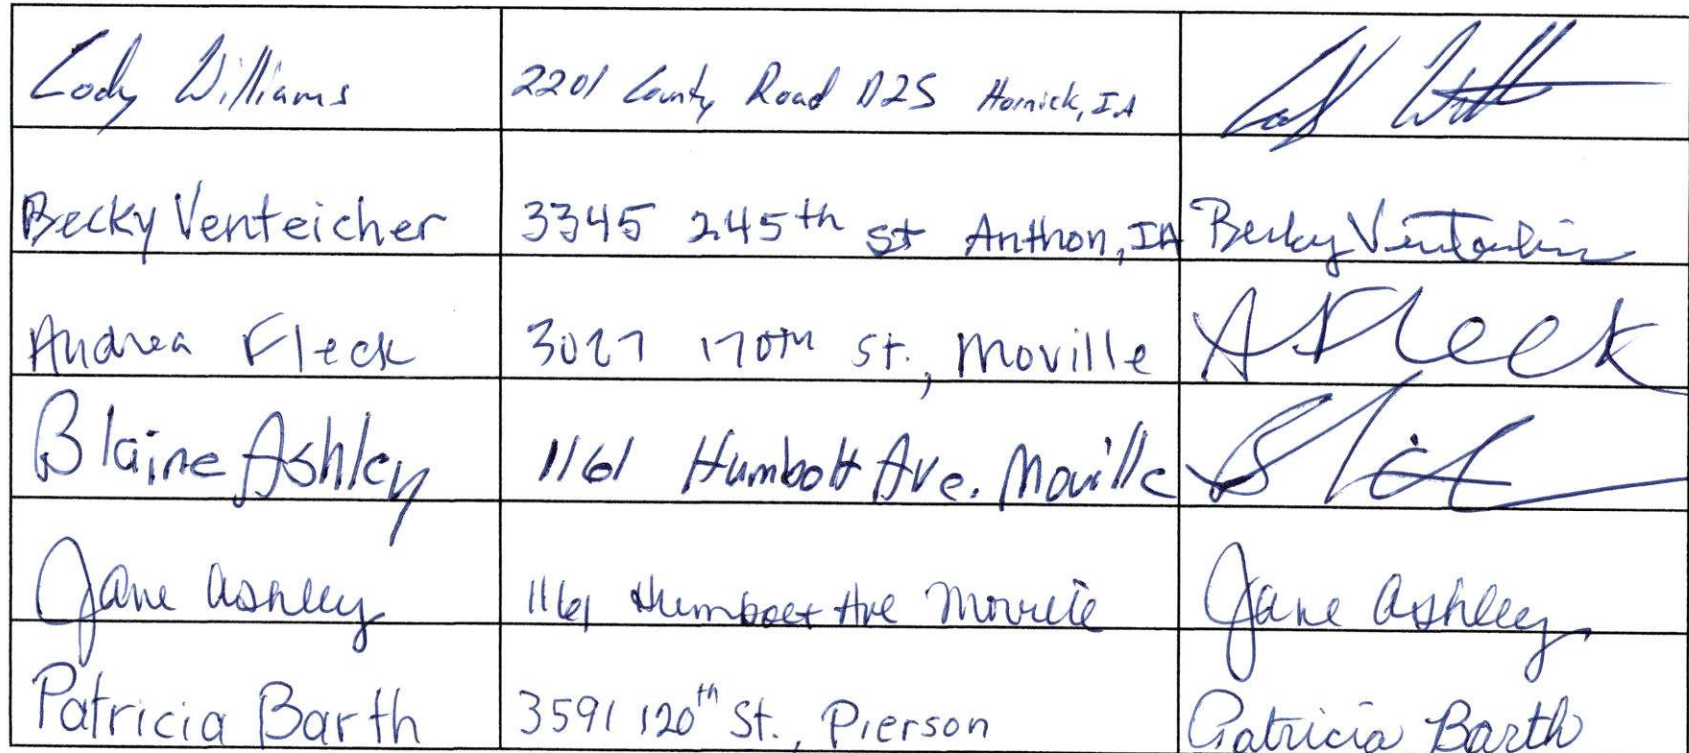 Cody Williams 2201 County Road D25 Hornick, IA
Becky Venteicher 3345 245th St Anthon, IA Becky Venteicher
Andrea Fleck 3027 170th St., Moville A Fleck
Blaine Ashley 1161 Humbolt Ave. Moville
Jane Ashley 1161 Humbolt Ave Moville Jane Ashley
Patricia Barth 3591 120th St., Pierson Patricia Barth